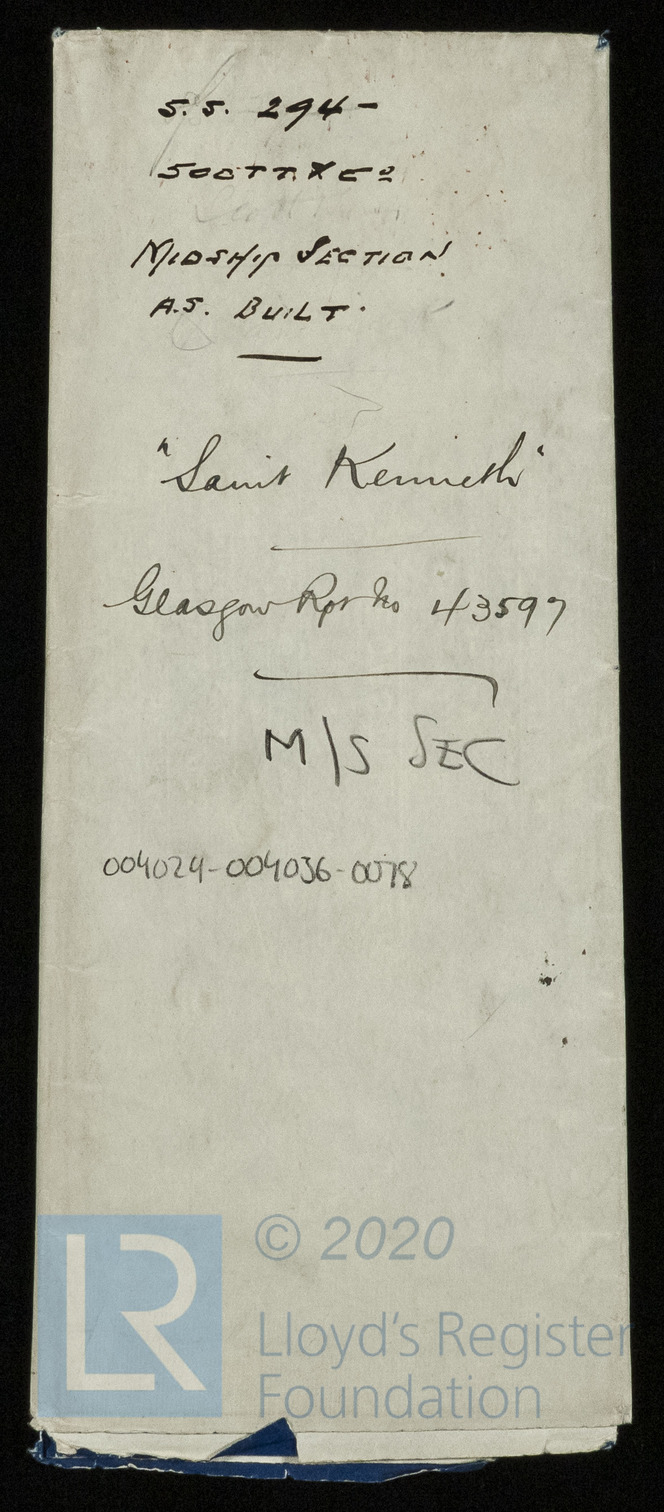 S.S. 294 -
SCOTT & Co
MIDSHIP SECTION
A.S. BUILT.
"Saint Kenneth"
Glasgow Rpt No 43597
M/S SEC
004024-004036-0078
© 2020
LR
Lloyd's Register
Foundation